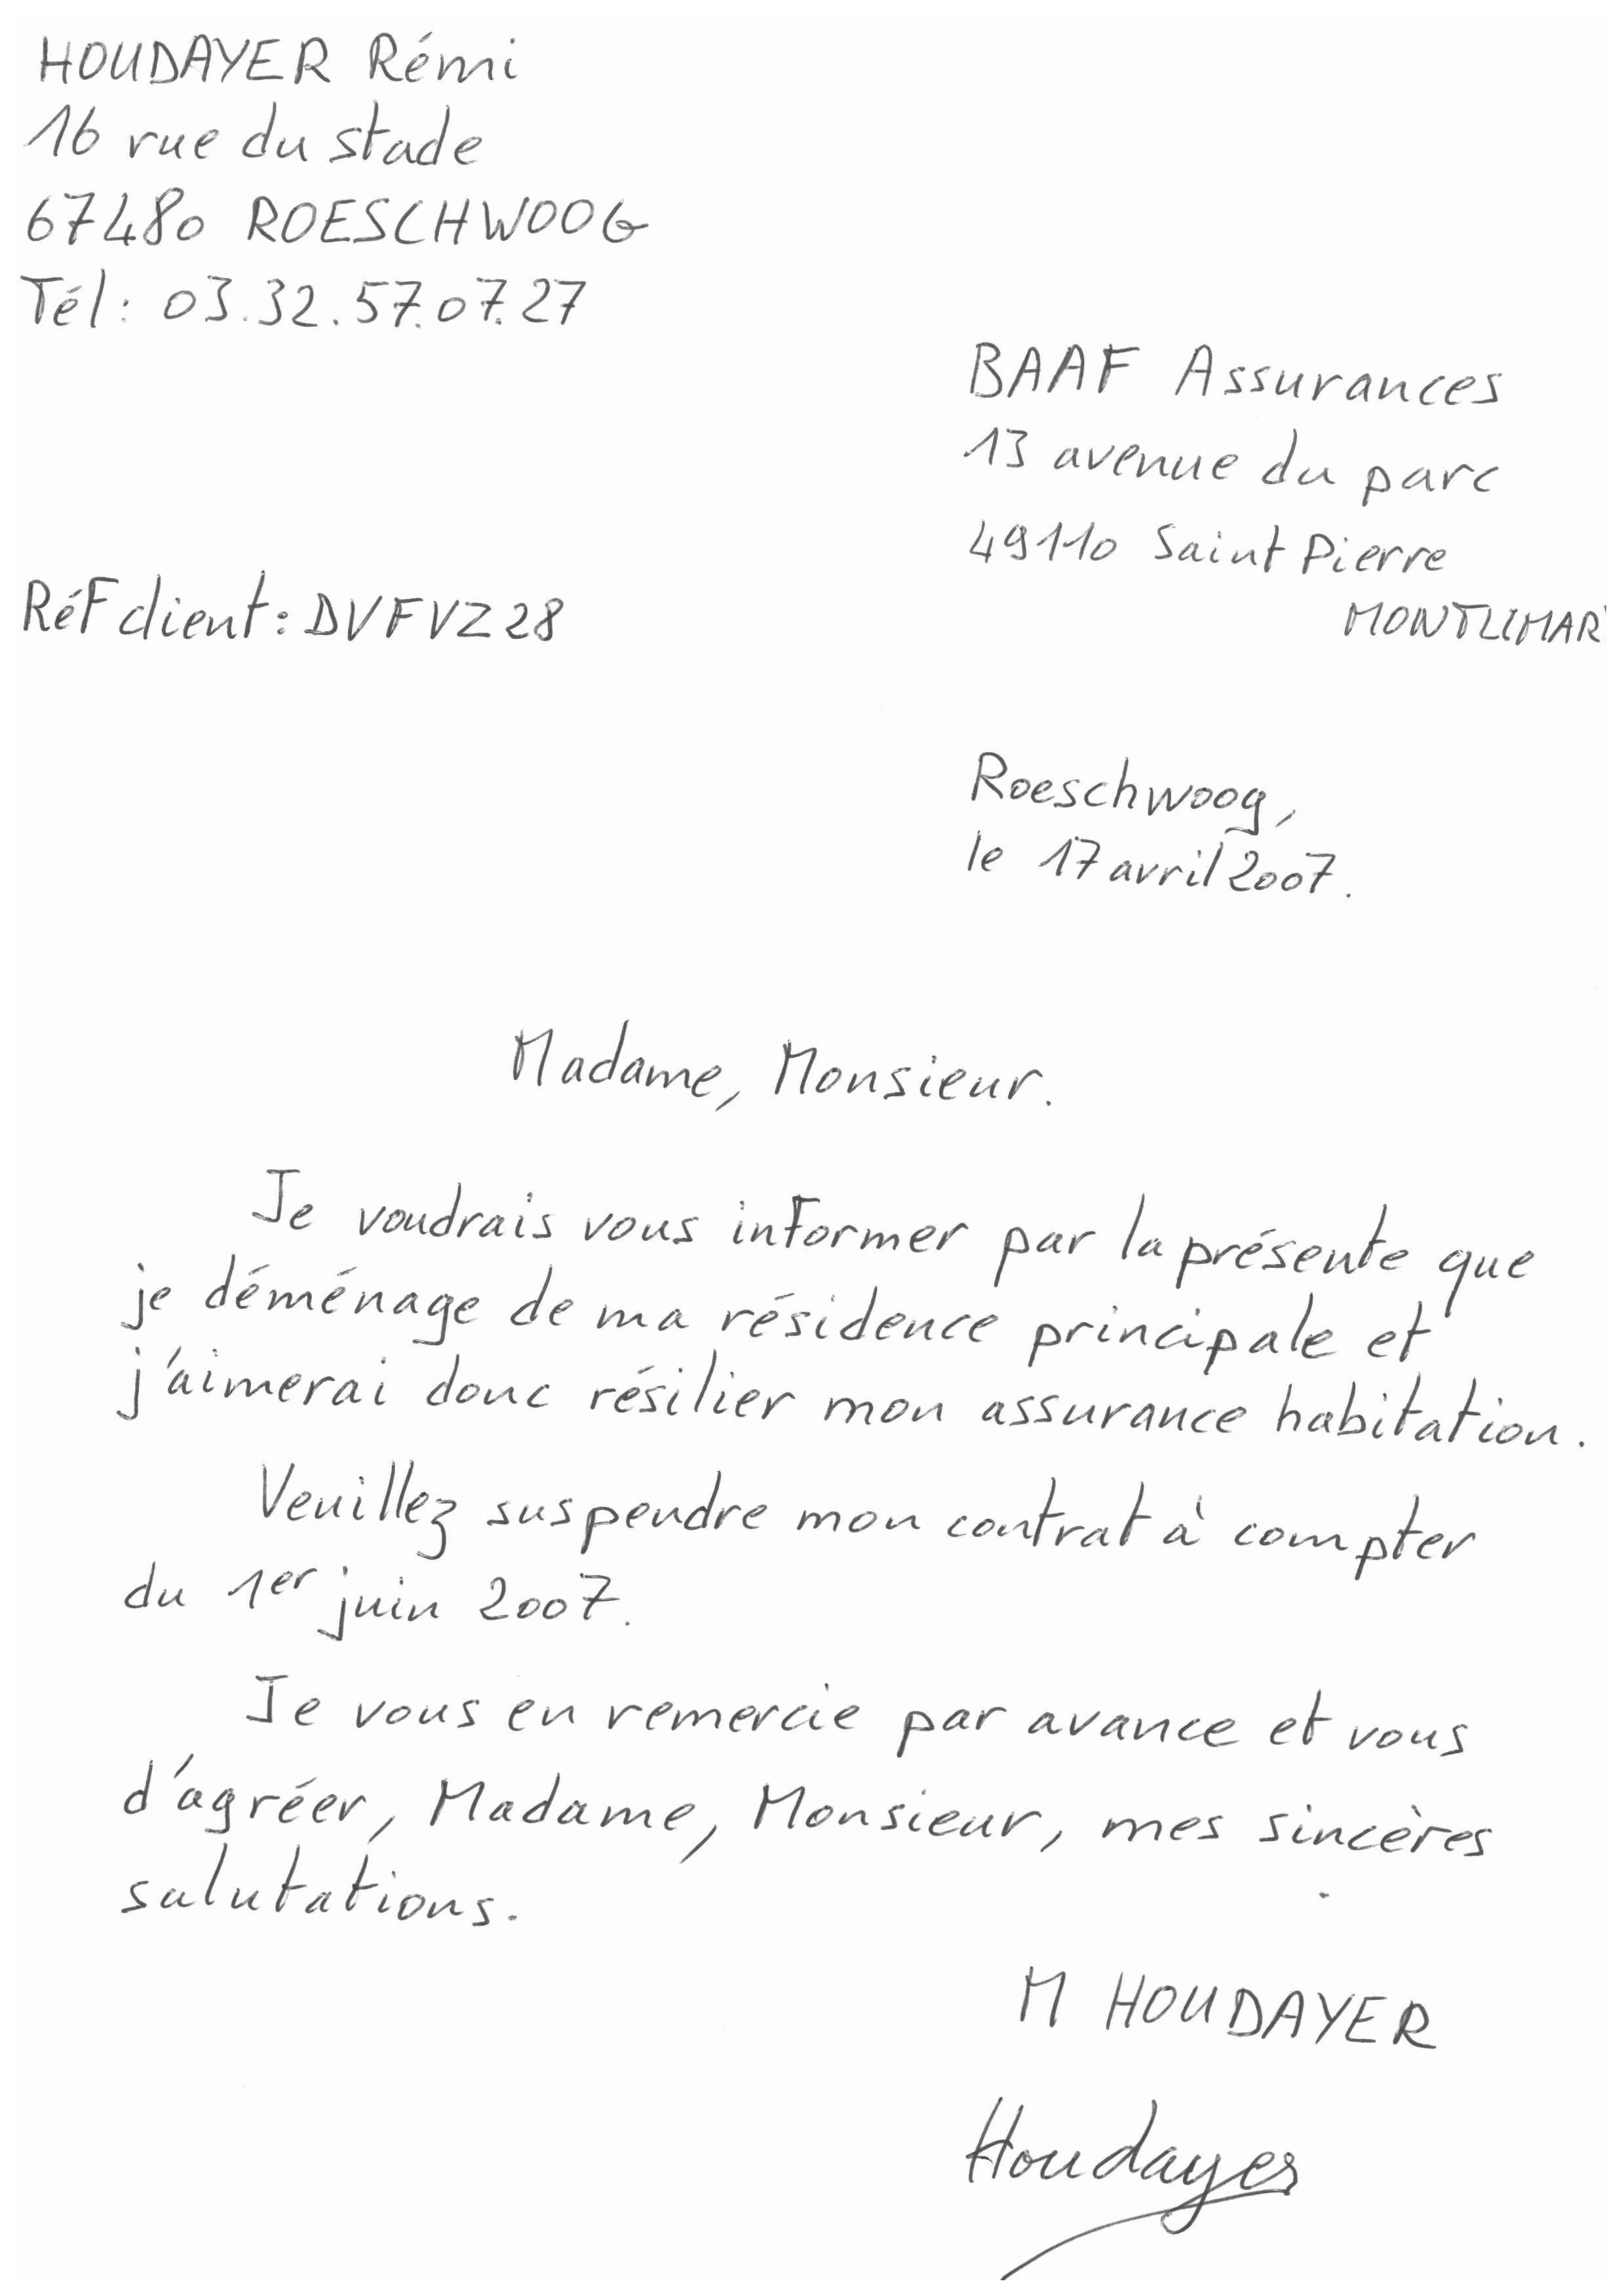 HOUDAYER Rémi
16 rue du stade
67480 ROESCHWOOG
Tél : 03.32.57.07.27
BAAF Assurances
13 avenue du parc
49110 Saint Pierre
MONTLIMAR
Réf client : DVFVZ28
Roeschwoog,
le 17 avril 2007.
Madame, Monsieur.
Je voudrais vous informer par la présente que
je déménage de ma résidence principale et
j'aimerai donc résilier mon assurance habitation.
Veuillez suspendre mon contrat à compter
du 1er juin 2007.
Je vous en remercie par avance et vous
d'agréer, Madame, Monsieur, mes sincères
salutations.
M HOUDAYER
Houdayer